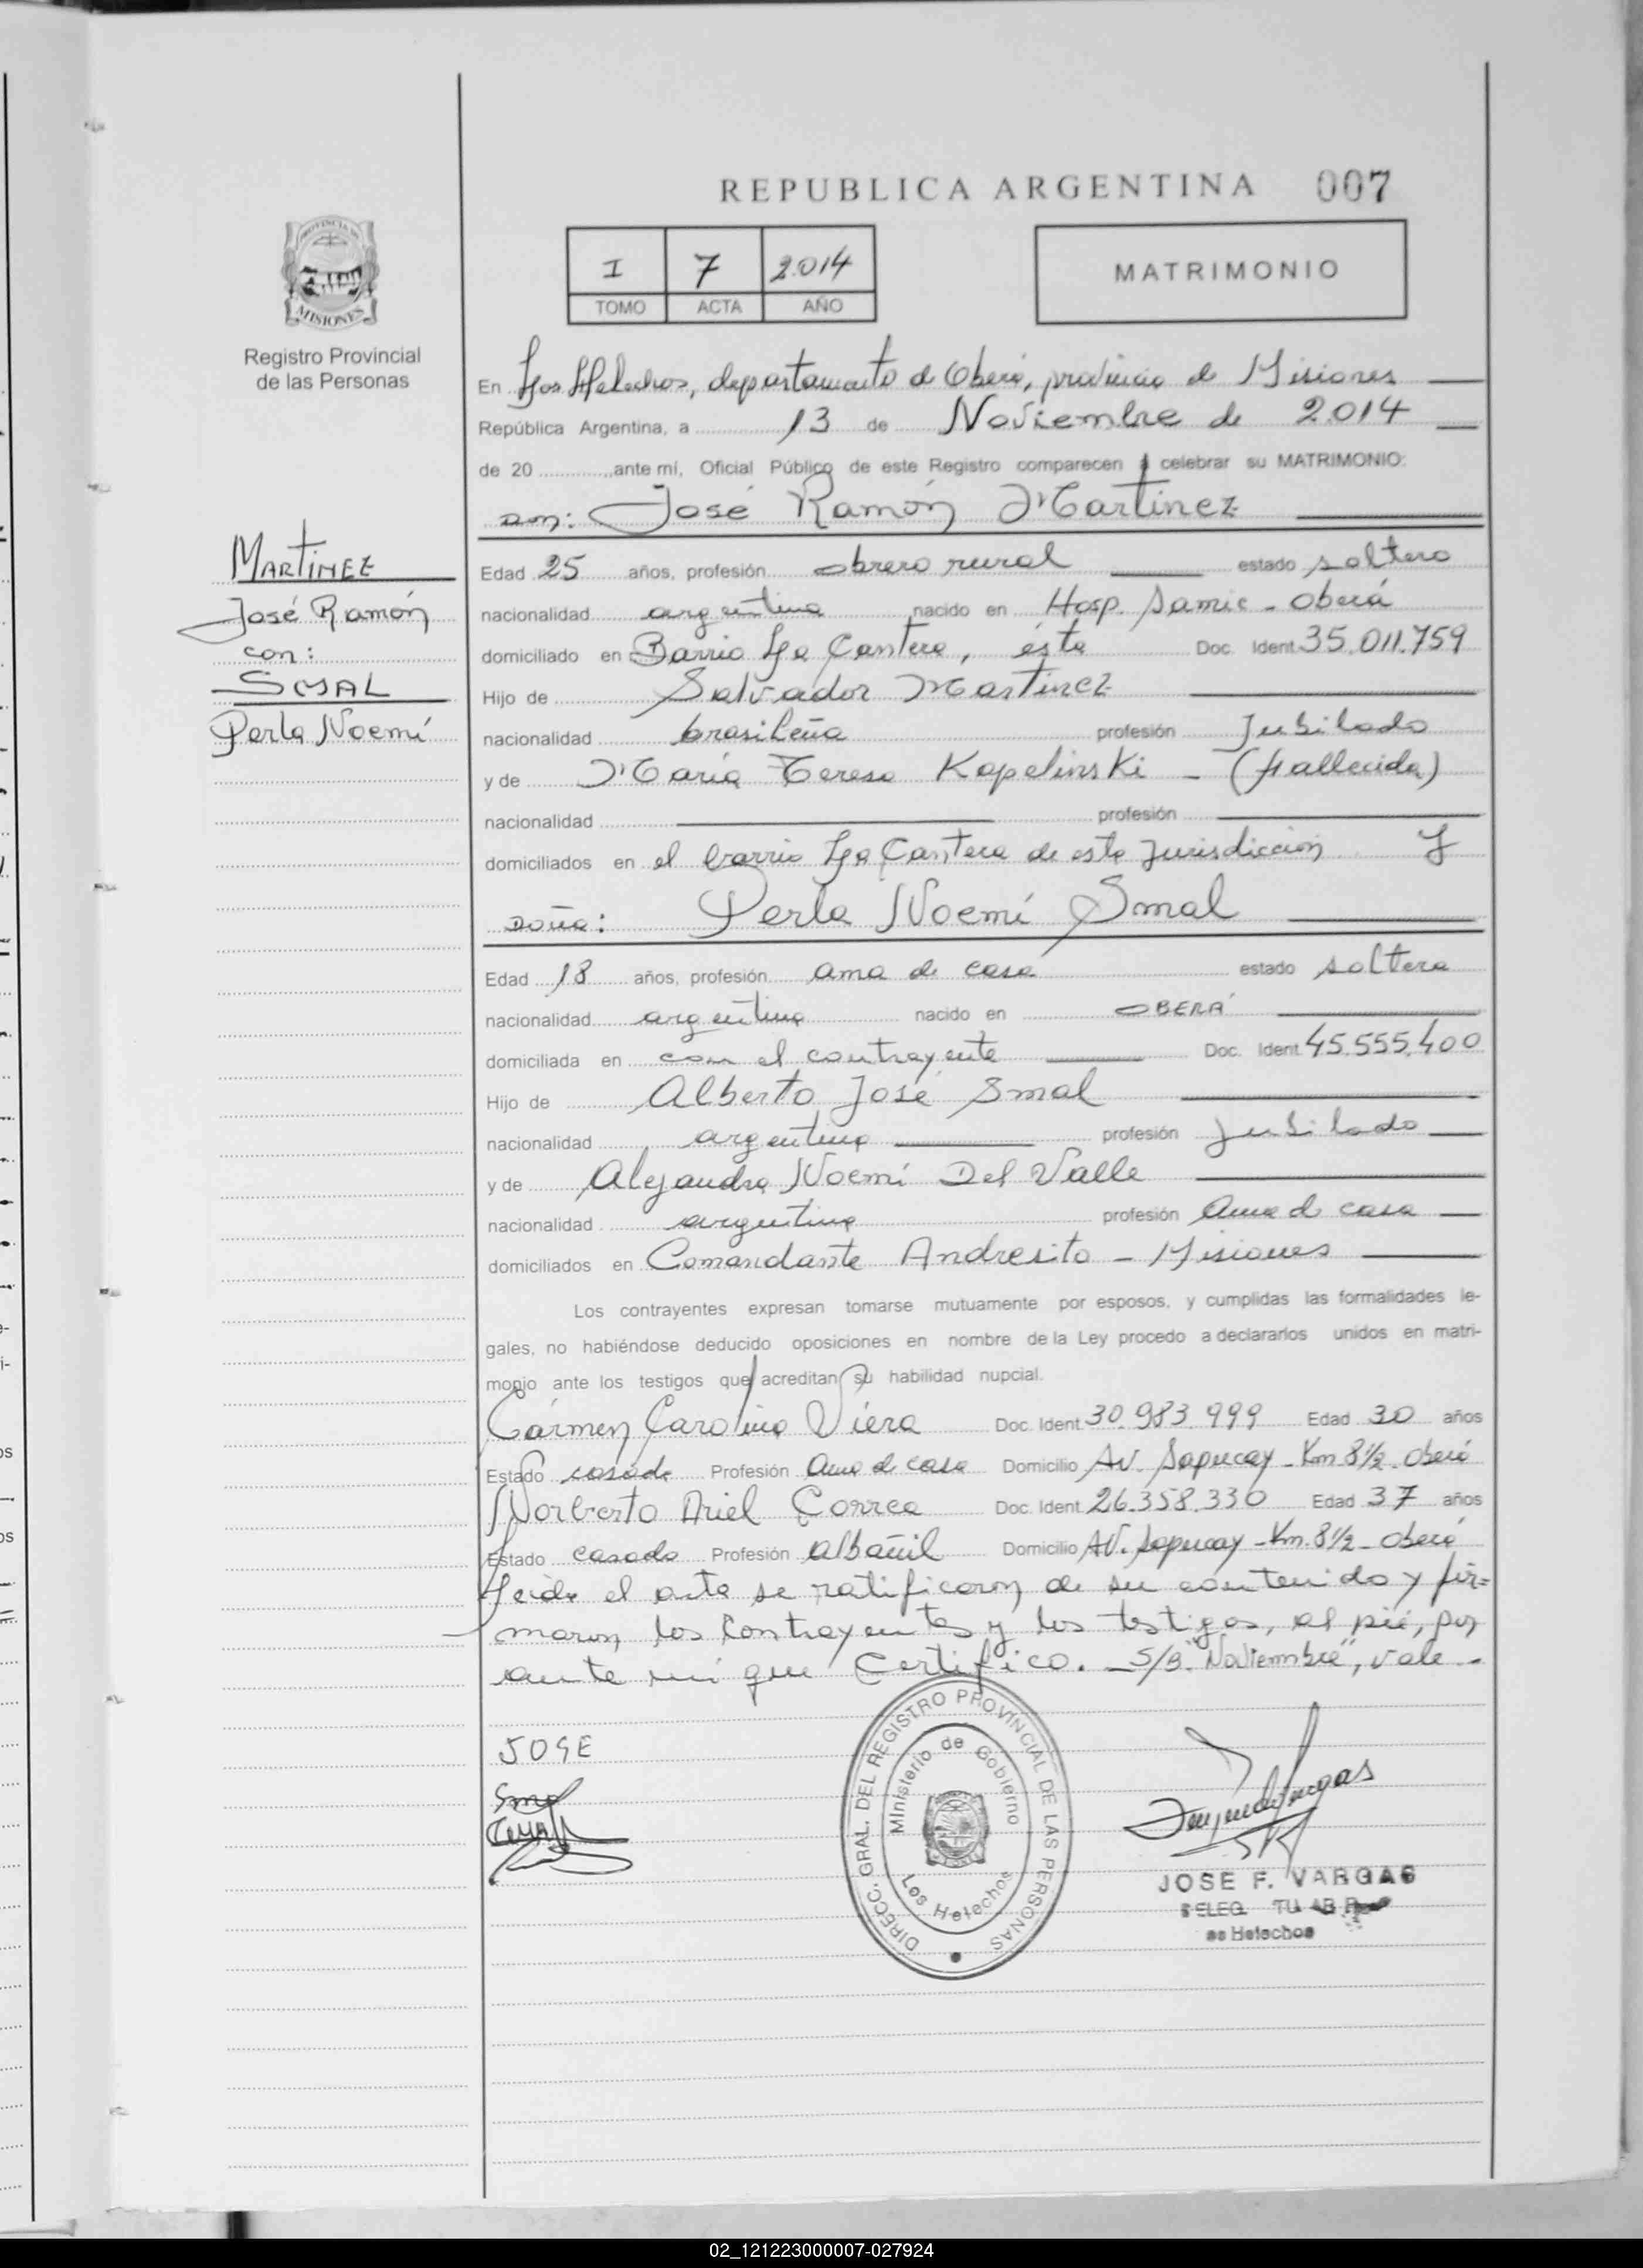 REPUBLICA ARGENTINA 007
I 7 2.014
TOMO ACTA AÑO
MATRIMONIO
PROVINCIA DE
MISIONES
Registro Provincial
de las Personas
En Los Helechos, departamento de Oberá, provincia de Misiones
República Argentina, a 13 de Noviembre de 2.014
de 20 ante mí, Oficial Público de este Registro comparecen a celebrar su MATRIMONIO:
Don: José Ramón Martinez
MARTINEZ
José Ramón
con:
SMAL
Perla Noemí
Edad 25 años, profesión obrero rural estado soltero
nacionalidad argentina nacido en Hosp. Samic - Oberá
domiciliado en Barrio La Cantera, ésta Doc. Ident. 35.011.759
Hijo de Salvador Martinez
nacionalidad brasileña profesión Jubilado
y de María Teresa Kapelinski - (fallecida)
nacionalidad profesión
domiciliados en el barrio La Cantera de esta Jurisdicción y
Doña: Perla Noemí Smal
Edad 18 años, profesión ama de casa estado soltera
nacionalidad argentina nacido en OBERÁ
domiciliada en con el contrayente Doc. Ident. 45.555.400
Hijo de Alberto José Smal
nacionalidad argentina profesión Jubilado
y de Alejandra Noemí Del Valle
nacionalidad argentina profesión Ama de casa
domiciliados en Comandante Andresito - Misiones
Los contrayentes expresan tomarse mutuamente por esposos, y cumplidas las formalidades le-
gales, no habiéndose deducido oposiciones en nombre de la Ley procedo a declararlos unidos en matri-
monio ante los testigos que acreditan su habilidad nupcial.
Cármen Carolina Viera Doc. Ident. 30.983.999 Edad 30 años
Estado casada Profesión Ama de casa Domicilio Av. Sapucay - Km 8½ - Oberá
Norberto Ariel Correa Doc. Ident. 26.358.330 Edad 37 años
Estado casado Profesión albañil Domicilio AV. Sapucay - Km. 8½ - Oberá
Leida el acta se ratificaron de su contenido y fir=
maron los Contrayentes y los testigos, al pié, por
ante mí que Certifico. - S/B. "Noviembre", vale. -
JOSE
DIRECC. GRAL. DEL REGISTRO PROVINCIAL DE LAS PERSONAS
Ministerio de Gobierno
Los Helechos
JOSE F. VARGAS
02_121223000007-027924